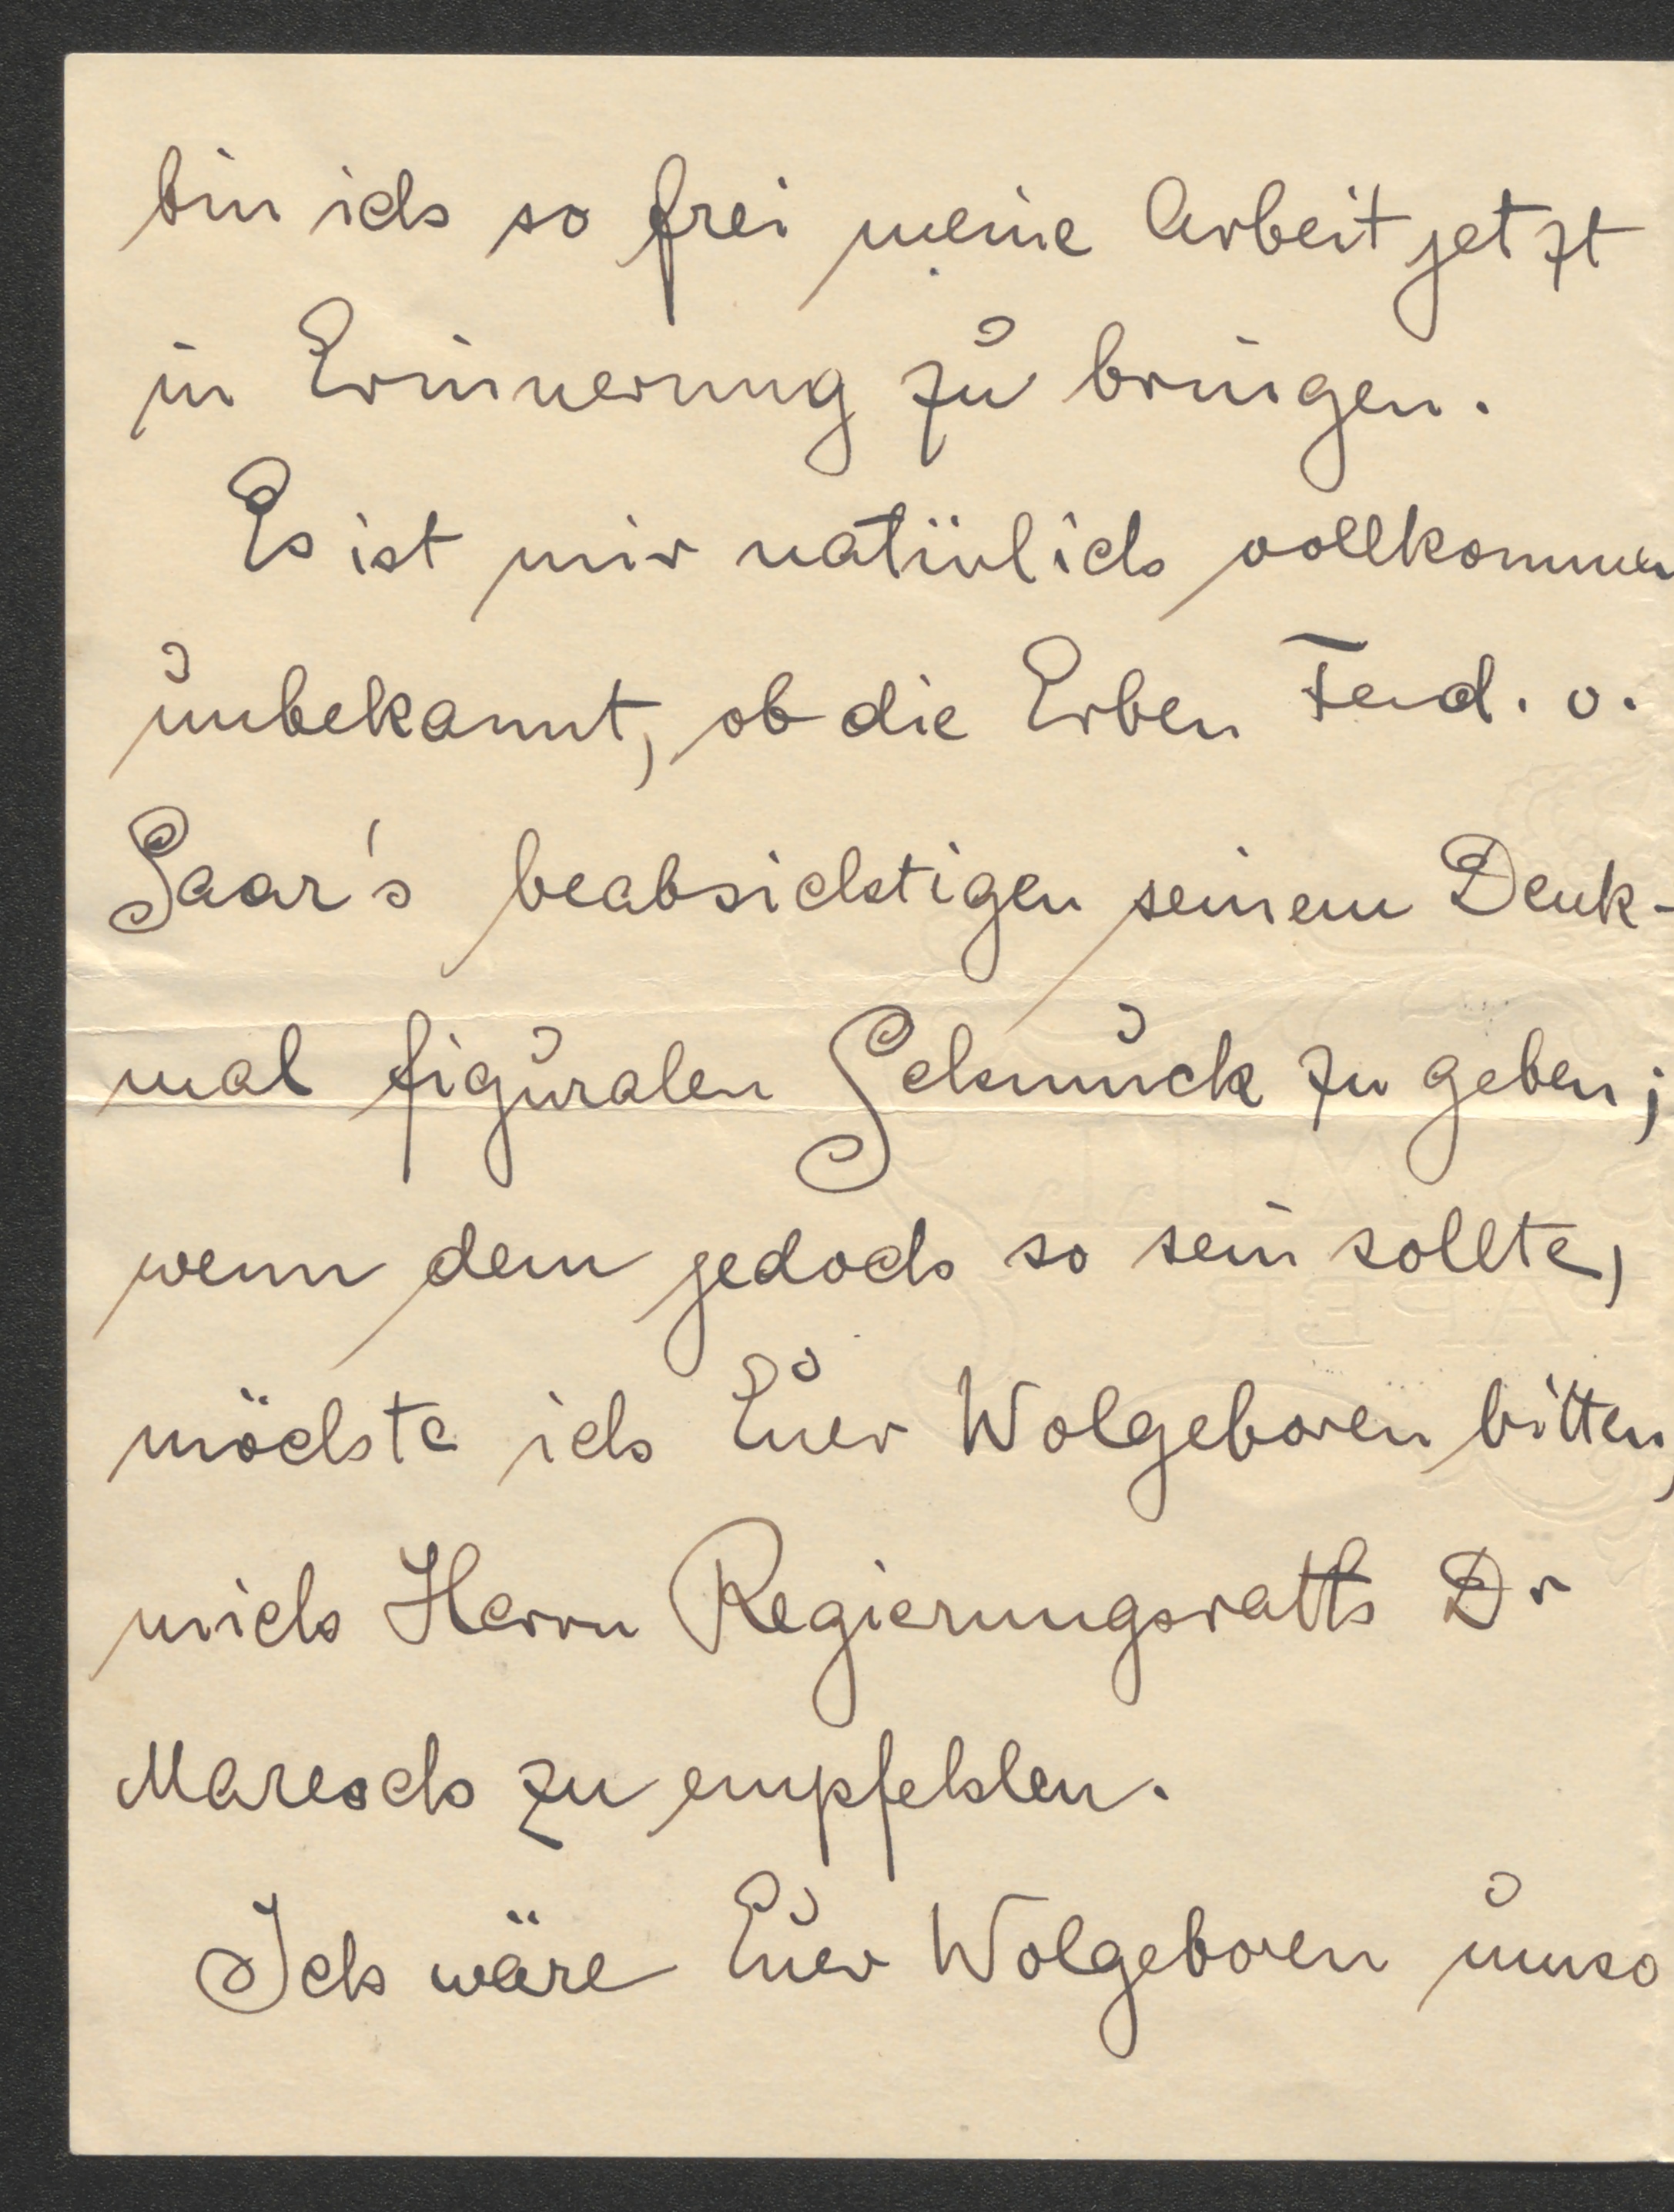 bin ich so frei meine Arbeit jetzt
in Erinnerung zu bringen.
Es ist mir natürlich vollkommen
unbekannt, ob die Erben Ferd. v.
Saar's beabsichtigen seinem Denk-
mal figuralen Schmuck zu geben;
wenn dem jedoch so sein sollte,
möchte ich Euer Wolgeboren bitten,
mich Herrn Regierungsrath Dr
Maresch zu empfehlen.
Ich wäre Euer Wolgeboren umso